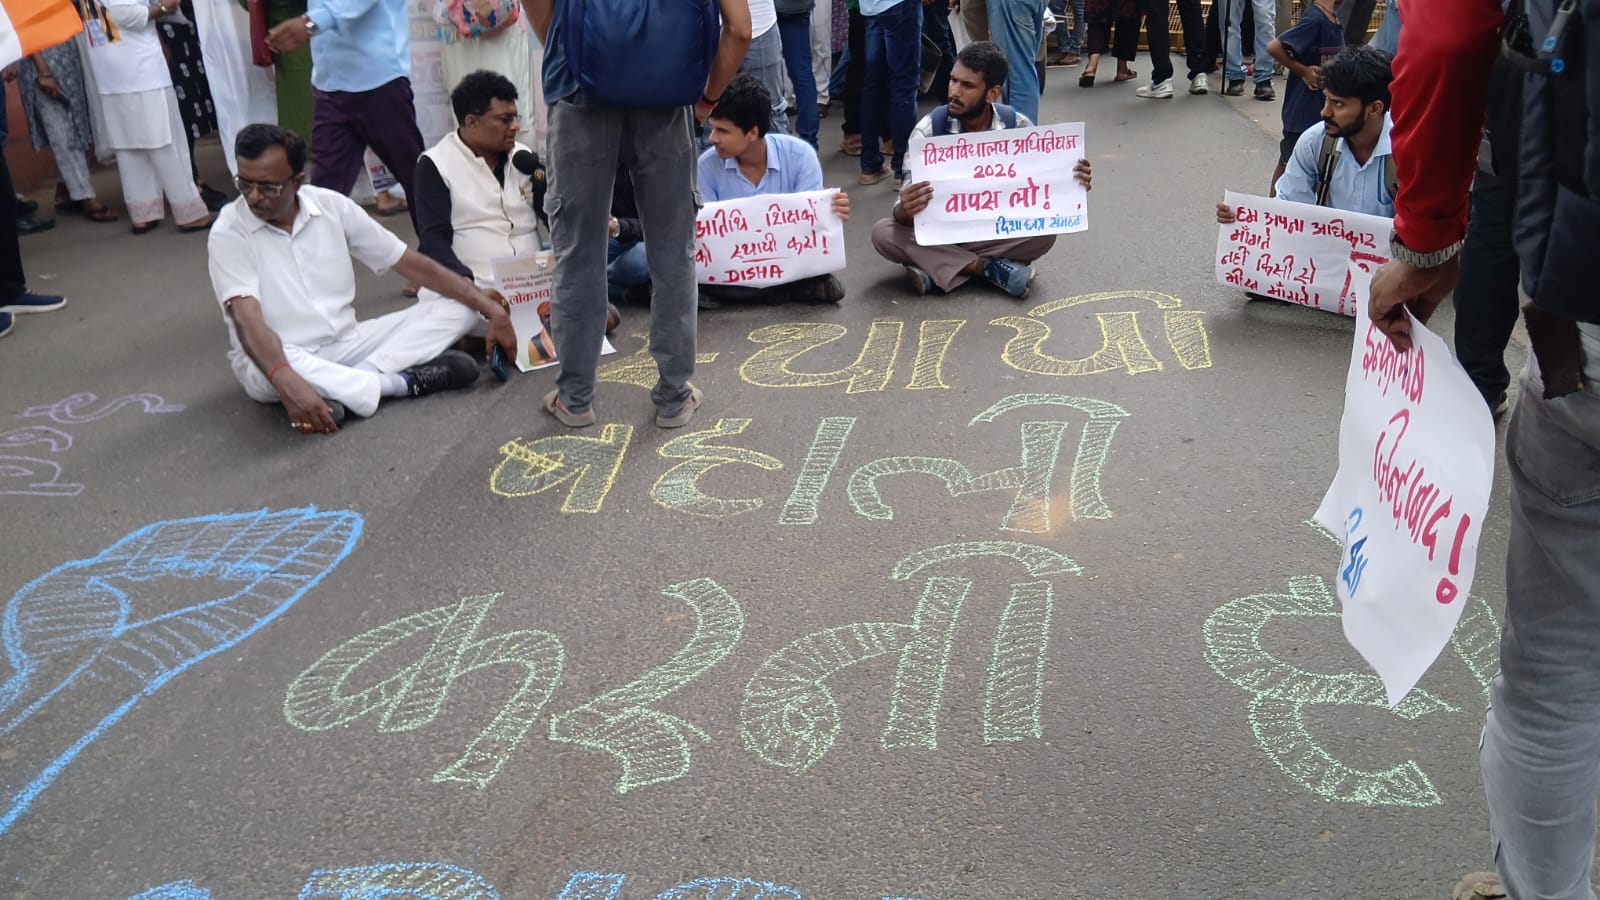 विश्वविधालय अधिनियम
2026
वापस लो!
दिशा छात्र संगठन
अतिथि शिक्षकों
को स्थायी करो!
DISHA
हम अपना अधिकार
माँगते
नहीं किसी से
भीख माँगते!
इन्क़लाब
ज़िन्दाबाद!
स्थायी
बहाली
करनी